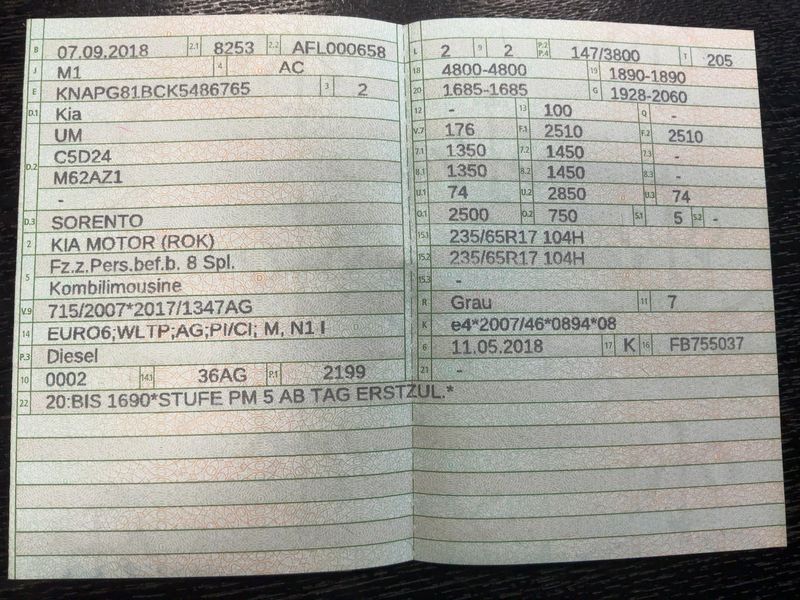 B 07.09.2018 2.1 8253 2.2 AFL000658
J M1 4 AC
E KNAPG81BCK5486765 3 2
D.1 Kia
UM
D.2 C5D24
M62AZ1
-
D.3 SORENTO
2 KIA MOTOR (ROK)
5 Fz.z.Pers.bef.b. 8 Spl.
Kombilimousine
V.9 715/2007*2017/1347AG
14 EURO6;WLTP;AG;PI/CI; M, N1 I
P.3 Diesel
10 0002 14.1 36AG P.1 2199
22 20:BIS 1690*STUFE PM 5 AB TAG ERSTZUL.*
L 2 9 2 P.2 P.4 147/3800 T 205
18 4800-4800 19 1890-1890
20 1685-1685 G 1928-2060
12 - 13 100 Q -
V.7 176 F.1 2510 F.2 2510
7.1 1350 7.2 1450 7.3 -
8.1 1350 8.2 1450 8.3 -
U.1 74 U.2 2850 U.3 74
O.1 2500 O.2 750 S.1 5 S.2 -
15.1 235/65R17 104H
15.2 235/65R17 104H
15.3 -
R Grau 11 7
K e4*2007/46*0894*08
6 11.05.2018 17 K 16 FB755037
21 -